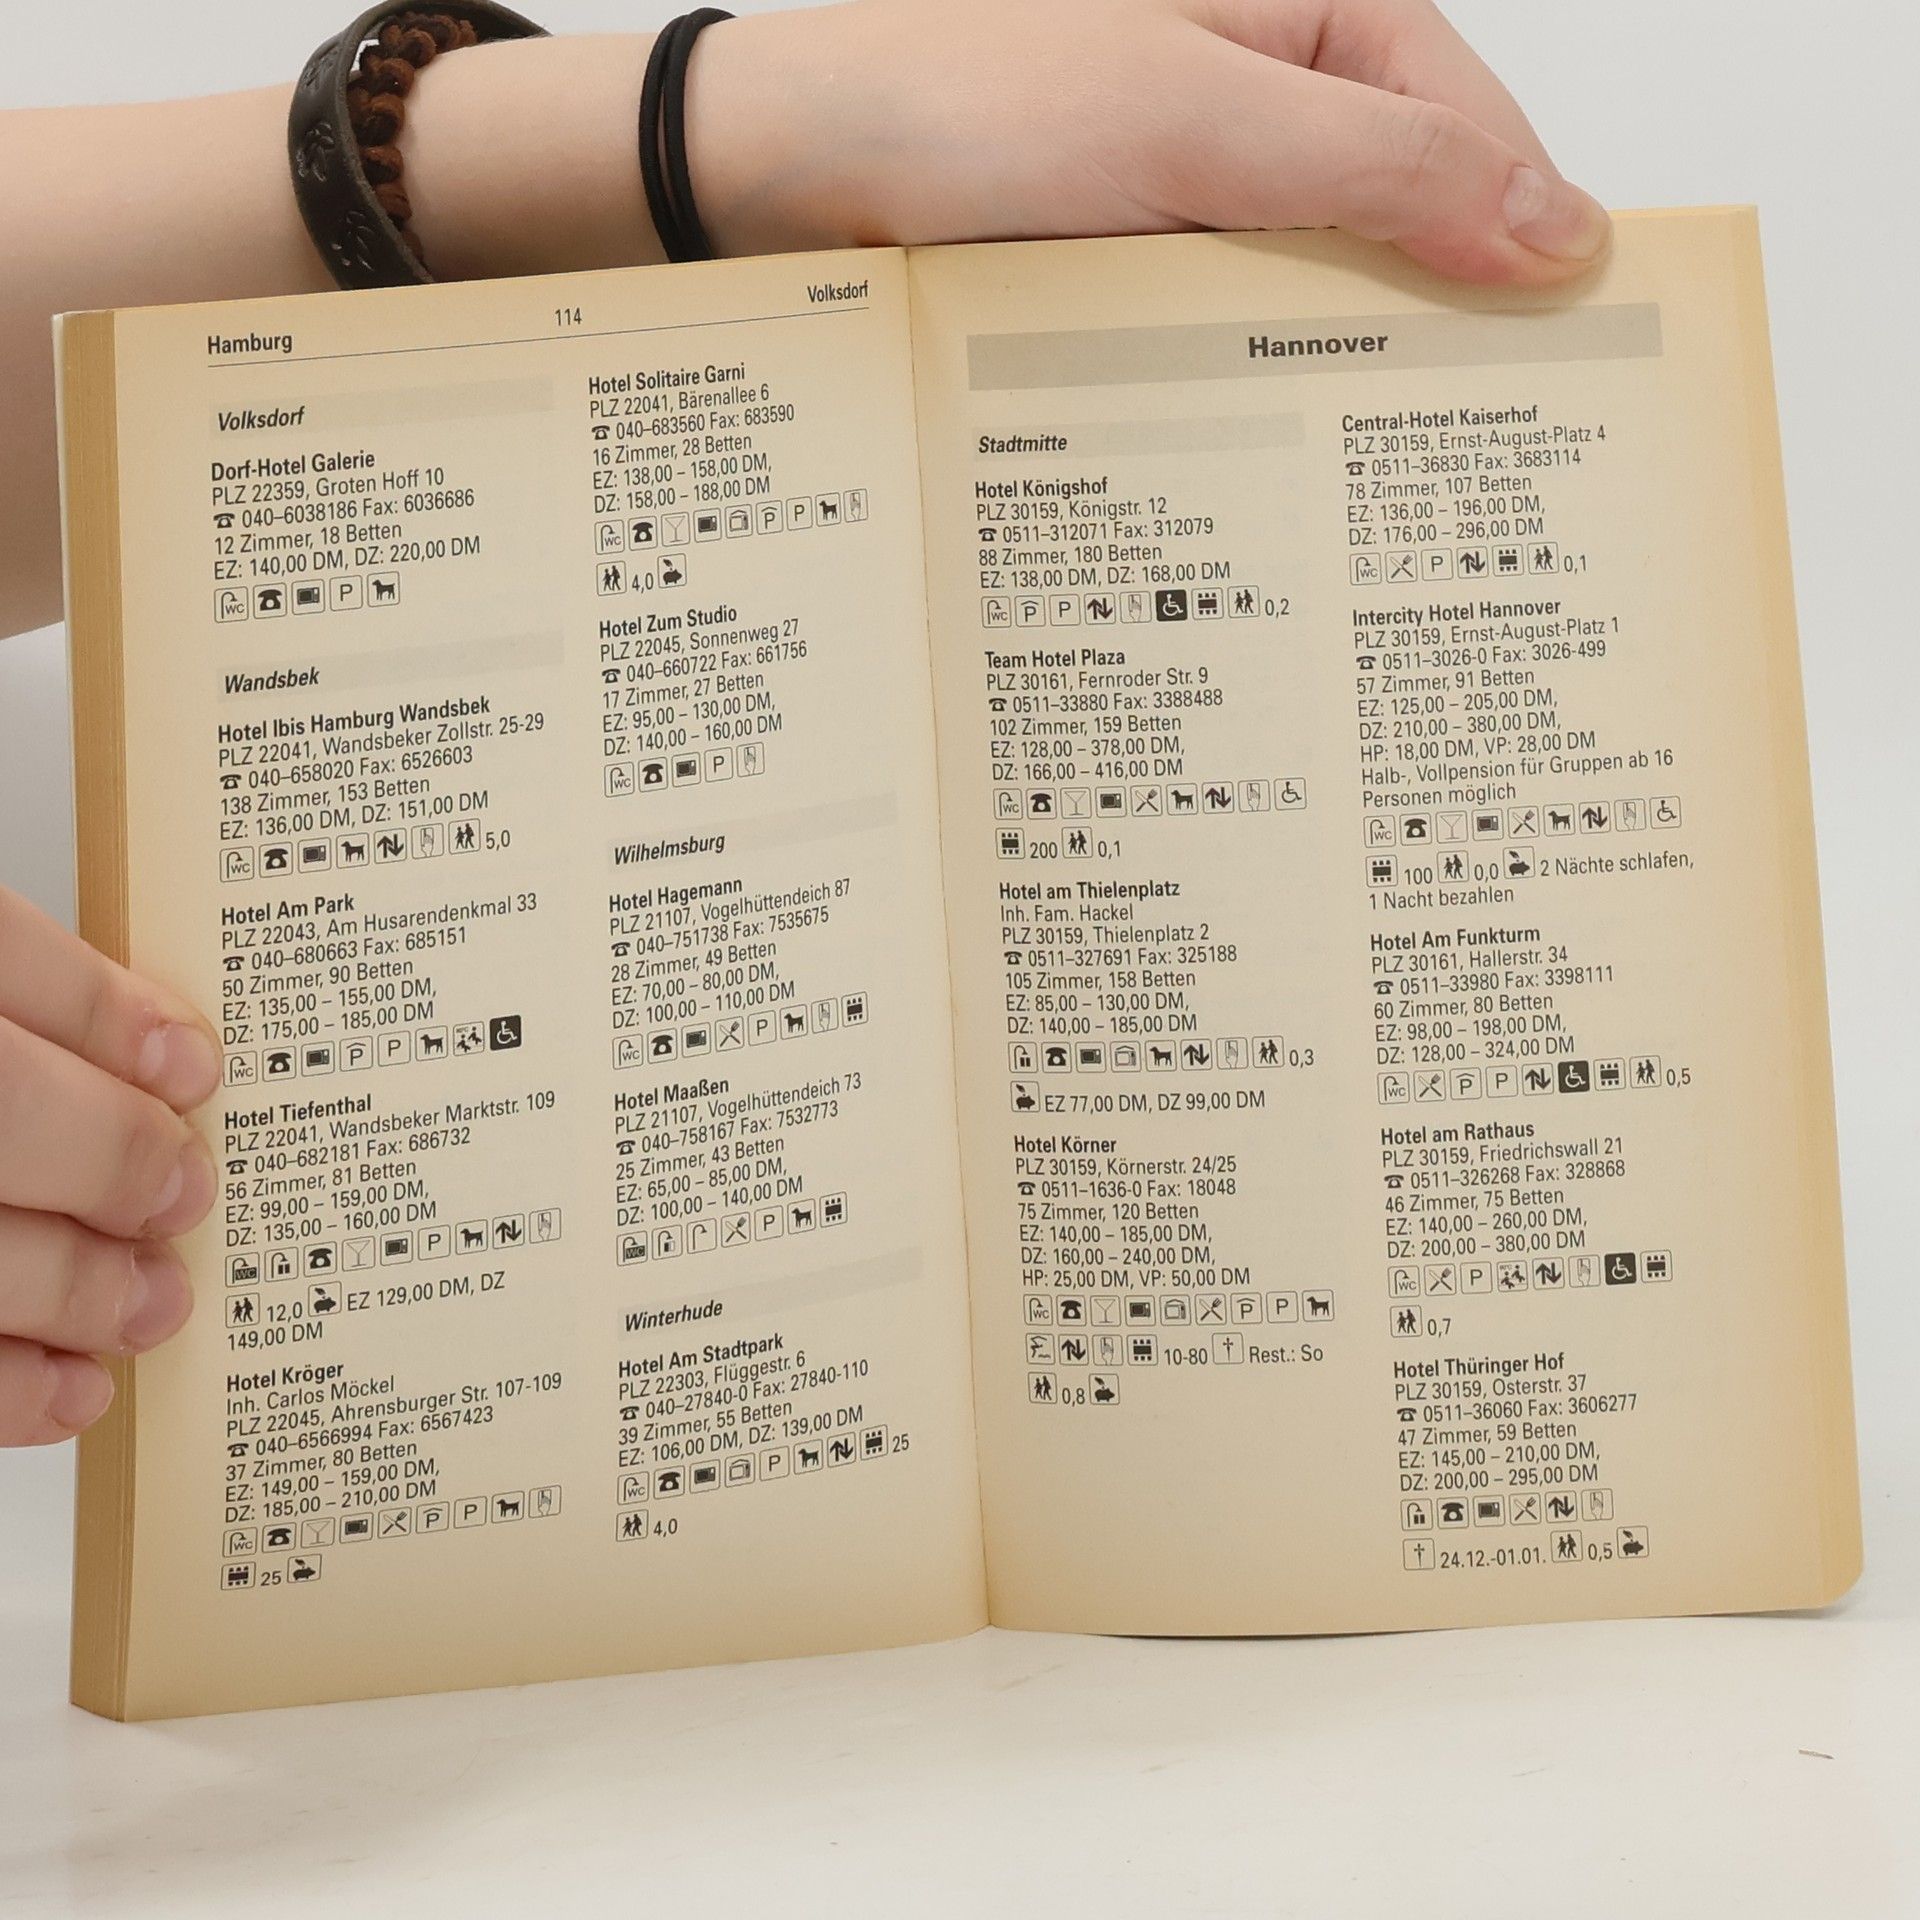 Hamburg
114
Volksdorf
Volksdorf
Dorf-Hotel Galerie
PLZ 22359, Groten Hoff 10
☎ 040–6038186 Fax: 6036686
12 Zimmer, 18 Betten
EZ: 140,00 DM, DZ: 220,00 DM
WC P
Wandsbek
Hotel Ibis Hamburg Wandsbek
PLZ 22041, Wandsbeker Zollstr. 25-29
☎ 040–658020 Fax: 6526603
138 Zimmer, 153 Betten
EZ: 136,00 DM, DZ: 151,00 DM
WC 5,0
Hotel Am Park
PLZ 22043, Am Husarendenkmal 33
☎ 040–680663 Fax: 685151
50 Zimmer, 90 Betten
EZ: 135,00 – 155,00 DM,
DZ: 175,00 – 185,00 DM
WC P P
Hotel Tiefenthal
PLZ 22041, Wandsbeker Marktstr. 109
☎ 040–682181 Fax: 686732
56 Zimmer, 81 Betten
EZ: 99,00 – 159,00 DM,
DZ: 135,00 – 160,00 DM
WC P
12,0 EZ 129,00 DM, DZ
149,00 DM
Hotel Kröger
Inh. Carlos Möckel
PLZ 22045, Ahrensburger Str. 107-109
☎ 040–6566994 Fax: 6567423
37 Zimmer, 80 Betten
EZ: 149,00 – 159,00 DM,
DZ: 185,00 – 210,00 DM
WC P P
25
Hotel Solitaire Garni
PLZ 22041, Bärenallee 6
☎ 040–683560 Fax: 683590
16 Zimmer, 28 Betten
EZ: 138,00 – 158,00 DM,
DZ: 158,00 – 188,00 DM
WC P P
4,0
Hotel Zum Studio
PLZ 22045, Sonnenweg 27
☎ 040–660722 Fax: 661756
17 Zimmer, 27 Betten
EZ: 95,00 – 130,00 DM,
DZ: 140,00 – 160,00 DM
WC P
Wilhelmsburg
Hotel Hagemann
PLZ 21107, Vogelhüttendeich 87
☎ 040–751738 Fax: 7535675
28 Zimmer, 49 Betten
EZ: 70,00 – 80,00 DM,
DZ: 100,00 – 110,00 DM
WC P
Hotel Maaßen
PLZ 21107, Vogelhüttendeich 73
☎ 040–758167 Fax: 7532773
25 Zimmer, 43 Betten
EZ: 65,00 – 85,00 DM,
DZ: 100,00 – 140,00 DM
WC P
Winterhude
Hotel Am Stadtpark
PLZ 22303, Flüggestr. 6
☎ 040–27840-0 Fax: 27840-110
39 Zimmer, 55 Betten
EZ: 106,00 DM, DZ: 139,00 DM
WC P 25
4,0
Hannover
Stadtmitte
Hotel Königshof
PLZ 30159, Königstr. 12
☎ 0511–312071 Fax: 312079
88 Zimmer, 180 Betten
EZ: 138,00 DM, DZ: 168,00 DM
WC P P 0,2
Team Hotel Plaza
PLZ 30161, Fernroder Str. 9
☎ 0511–33880 Fax: 3388488
102 Zimmer, 159 Betten
EZ: 128,00 – 378,00 DM,
DZ: 166,00 – 416,00 DM
WC
200 0,1
Hotel am Thielenplatz
Inh. Fam. Hackel
PLZ 30159, Thielenplatz 2
☎ 0511–327691 Fax: 325188
105 Zimmer, 158 Betten
EZ: 85,00 – 130,00 DM,
DZ: 140,00 – 185,00 DM
0,3
EZ 77,00 DM, DZ 99,00 DM
Hotel Körner
PLZ 30159, Körnerstr. 24/25
☎ 0511–1636-0 Fax: 18048
75 Zimmer, 120 Betten
EZ: 140,00 – 185,00 DM,
DZ: 160,00 – 240,00 DM,
HP: 25,00 DM, VP: 50,00 DM
WC P P
10-80 † Rest.: So
0,8
Central-Hotel Kaiserhof
PLZ 30159, Ernst-August-Platz 4
☎ 0511–36830 Fax: 3683114
78 Zimmer, 107 Betten
EZ: 136,00 – 196,00 DM,
DZ: 176,00 – 296,00 DM
WC P 0,1
Intercity Hotel Hannover
PLZ 30159, Ernst-August-Platz 1
☎ 0511–3026-0 Fax: 3026-499
57 Zimmer, 91 Betten
EZ: 125,00 – 205,00 DM,
DZ: 210,00 – 380,00 DM,
HP: 18,00 DM, VP: 28,00 DM
Halb-, Vollpension für Gruppen ab 16
Personen möglich
WC
100 0,0 2 Nächte schlafen,
1 Nacht bezahlen
Hotel Am Funkturm
PLZ 30161, Hallerstr. 34
☎ 0511–33980 Fax: 3398111
60 Zimmer, 80 Betten
EZ: 98,00 – 198,00 DM,
DZ: 128,00 – 324,00 DM
WC P P 0,5
Hotel am Rathaus
PLZ 30159, Friedrichswall 21
☎ 0511–326268 Fax: 328868
46 Zimmer, 75 Betten
EZ: 140,00 – 260,00 DM,
DZ: 200,00 – 380,00 DM
WC P
0,7
Hotel Thüringer Hof
PLZ 30159, Osterstr. 37
☎ 0511–36060 Fax: 3606277
47 Zimmer, 59 Betten
EZ: 145,00 – 210,00 DM,
DZ: 200,00 – 295,00 DM
† 24.12.-01.01. 0,5